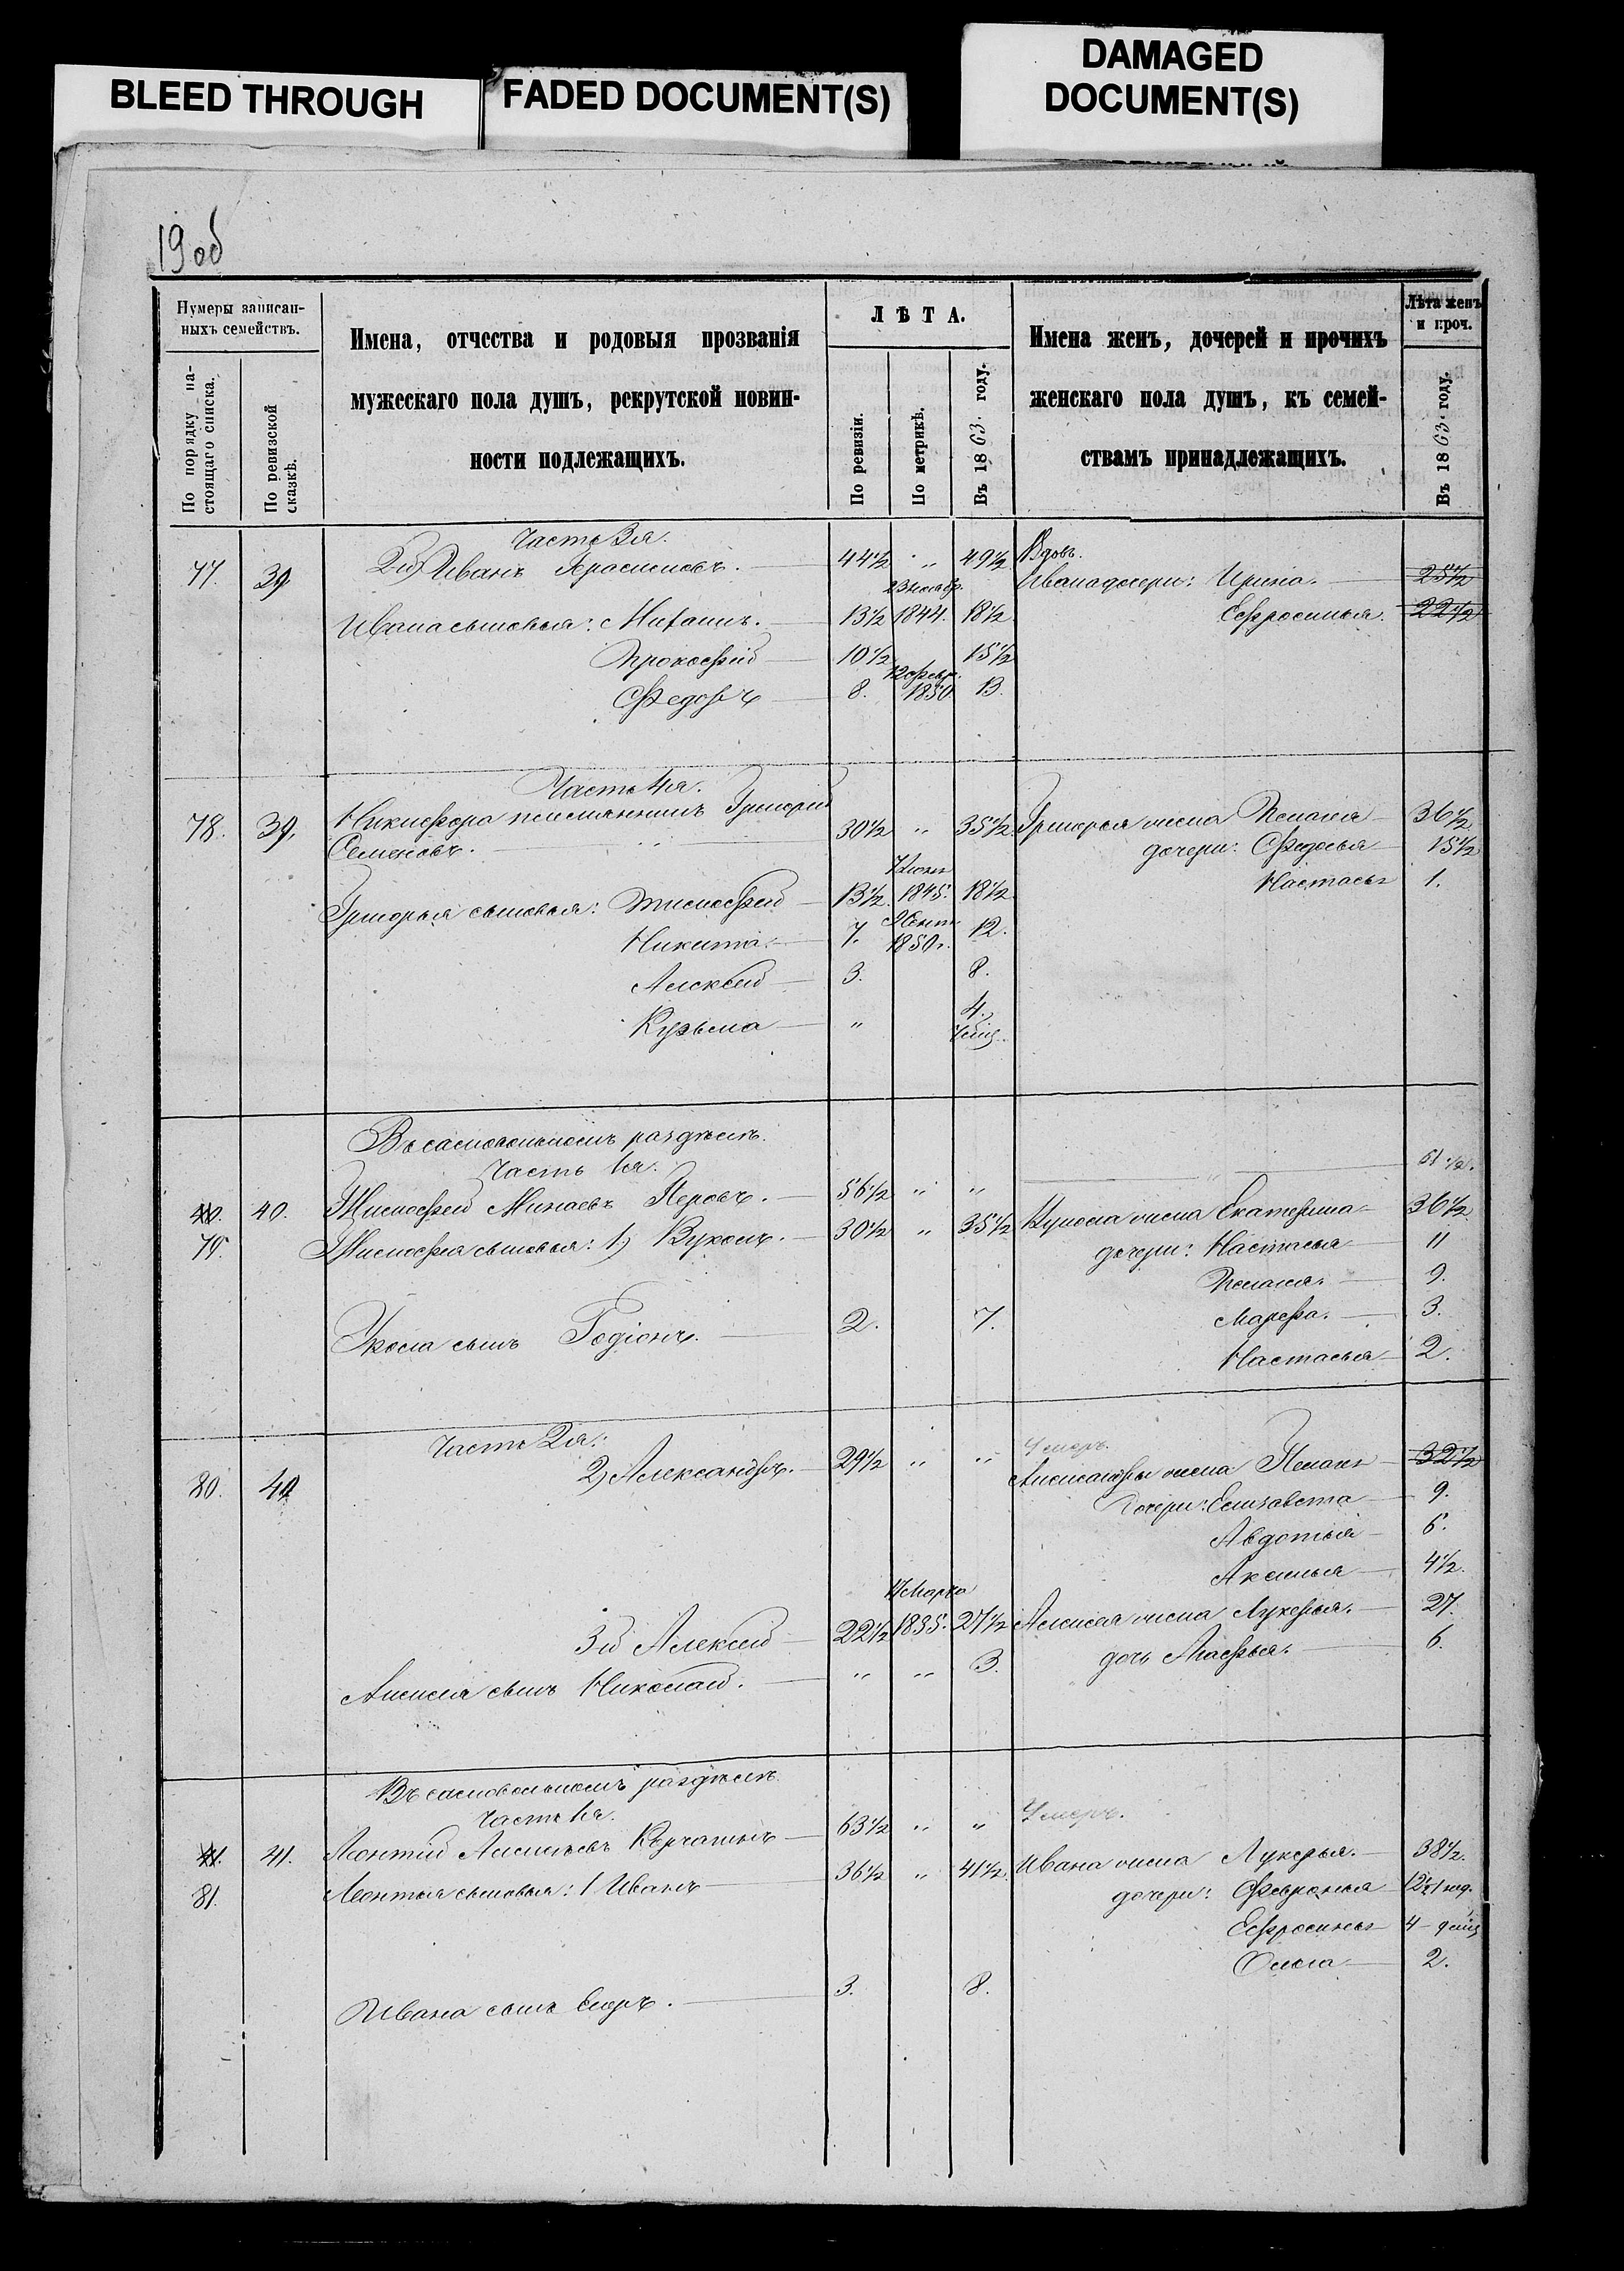 BLEED THROUGH
FADED DOCUMENT(S)
DAMAGED
DOCUMENT(S)
19 об
Нумеры записан-
ныхъ семействъ.
По порядку на-
стоящаго списка.
По ревизской
сказкѣ.
Имена, отчества и родовыя прозванія
мужескаго пола душъ, рекрутской повин-
ности подлежащихъ.
ЛѢТА.
По ревизіи.
По метрикѣ.
Въ 1863. году.
Имена женъ, дочерей и прочихъ
женскаго пола душъ, къ семей-
ствамъ принадлежащихъ.
Лѣта женъ
и проч.
Въ 1863. году.
Часть 3я.
77. 39 2й Иванъ Герасимовъ. 44½ " 49½ Вдовъ.
Ивана дочери: Ирина. 25½
23 ноябр.
Ивана сыновья: 13½ 1844. 18½ Ефросинья. 22½
Прокофій 10½ 15½
12 февр.
Федоръ 8. 1850 13.
Часть 4я.
78. 39. Никифора племянникъ Григорій
Семеновъ. 30½ " 35½ Григорья жена Пелагея 36½
дочери: Федосья 15½
Настасья 1.
Григорья сыновья: Тимофей 13½. 1845. 18½
Никита 7. Сент. 1850г. 12.
Алексей 3. 8.
Кузьма " 4.
Въ самовольномъ раздѣлѣ.
Часть 1я.
61½.
40. 40. Тимофей Минаевъ 56½ " "
79. Тимофея сыновья: 1) Вуколъ. 30½ " 35½ Вукола жена Екатерина 36½
дочери: Настасья 11
Пелагея. 9.
Марфа. 3.
Настасья 2.
сынъ Родіонъ. 2. 7.
Часть 2я:
80. 40 2) Александръ. 29½ " " Умеръ.
Александры жена Пелагея 32½
Дочери: Елизавета 9.
Авдотья 6.
Аксинья 4½.
Марта
3й Алексей 22½ 1835. 27½ Алексея жена Лукерья. 27.
дочь 6.
Алексея сынъ Николай. " " 3.
Въ самовольномъ раздѣлѣ
Часть 1я.
41. 41. Леонтій 63½ " " Умеръ.
81. Леонтья сыновья: 1 Иванъ 36½ " 41½. Ивана жена Лукерья. 38½.
дочери: Февронья
Ефросинья
Ольга 2.
Ивана сынъ Егоръ. 3. 8.